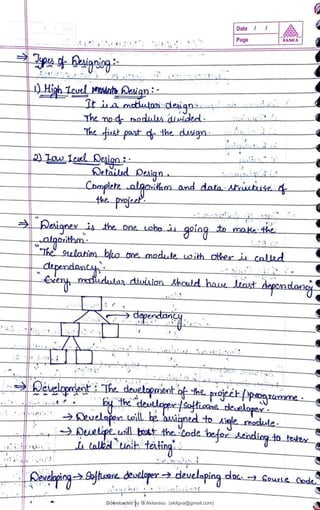 Date / /
Page
RANKA
⇒ Types of Designing :-
1) High Level Design :-
It is a modular design.
The no of modules divided.
The first part of the design.
2) Low Level Design :-
Detailed Design.
Complete algorithm and data structure of
the project.
⇒ "Designer is the one who is going to make the
algorithm.
"The relation b/w one module with other is called
dependancy."
"Every modular division should have least dependancy
→ dependancy
⇒ Development : The development of the project / programme
by the "developer / software developer.
→ Developer will be assigned to single module.
→ Develope will test the code befor sending to tester
is called "Unit testing"
Developing → Software developer → developing doc → Source Code
Downloaded by B.Akilarasu (akilgva@gmail.com)